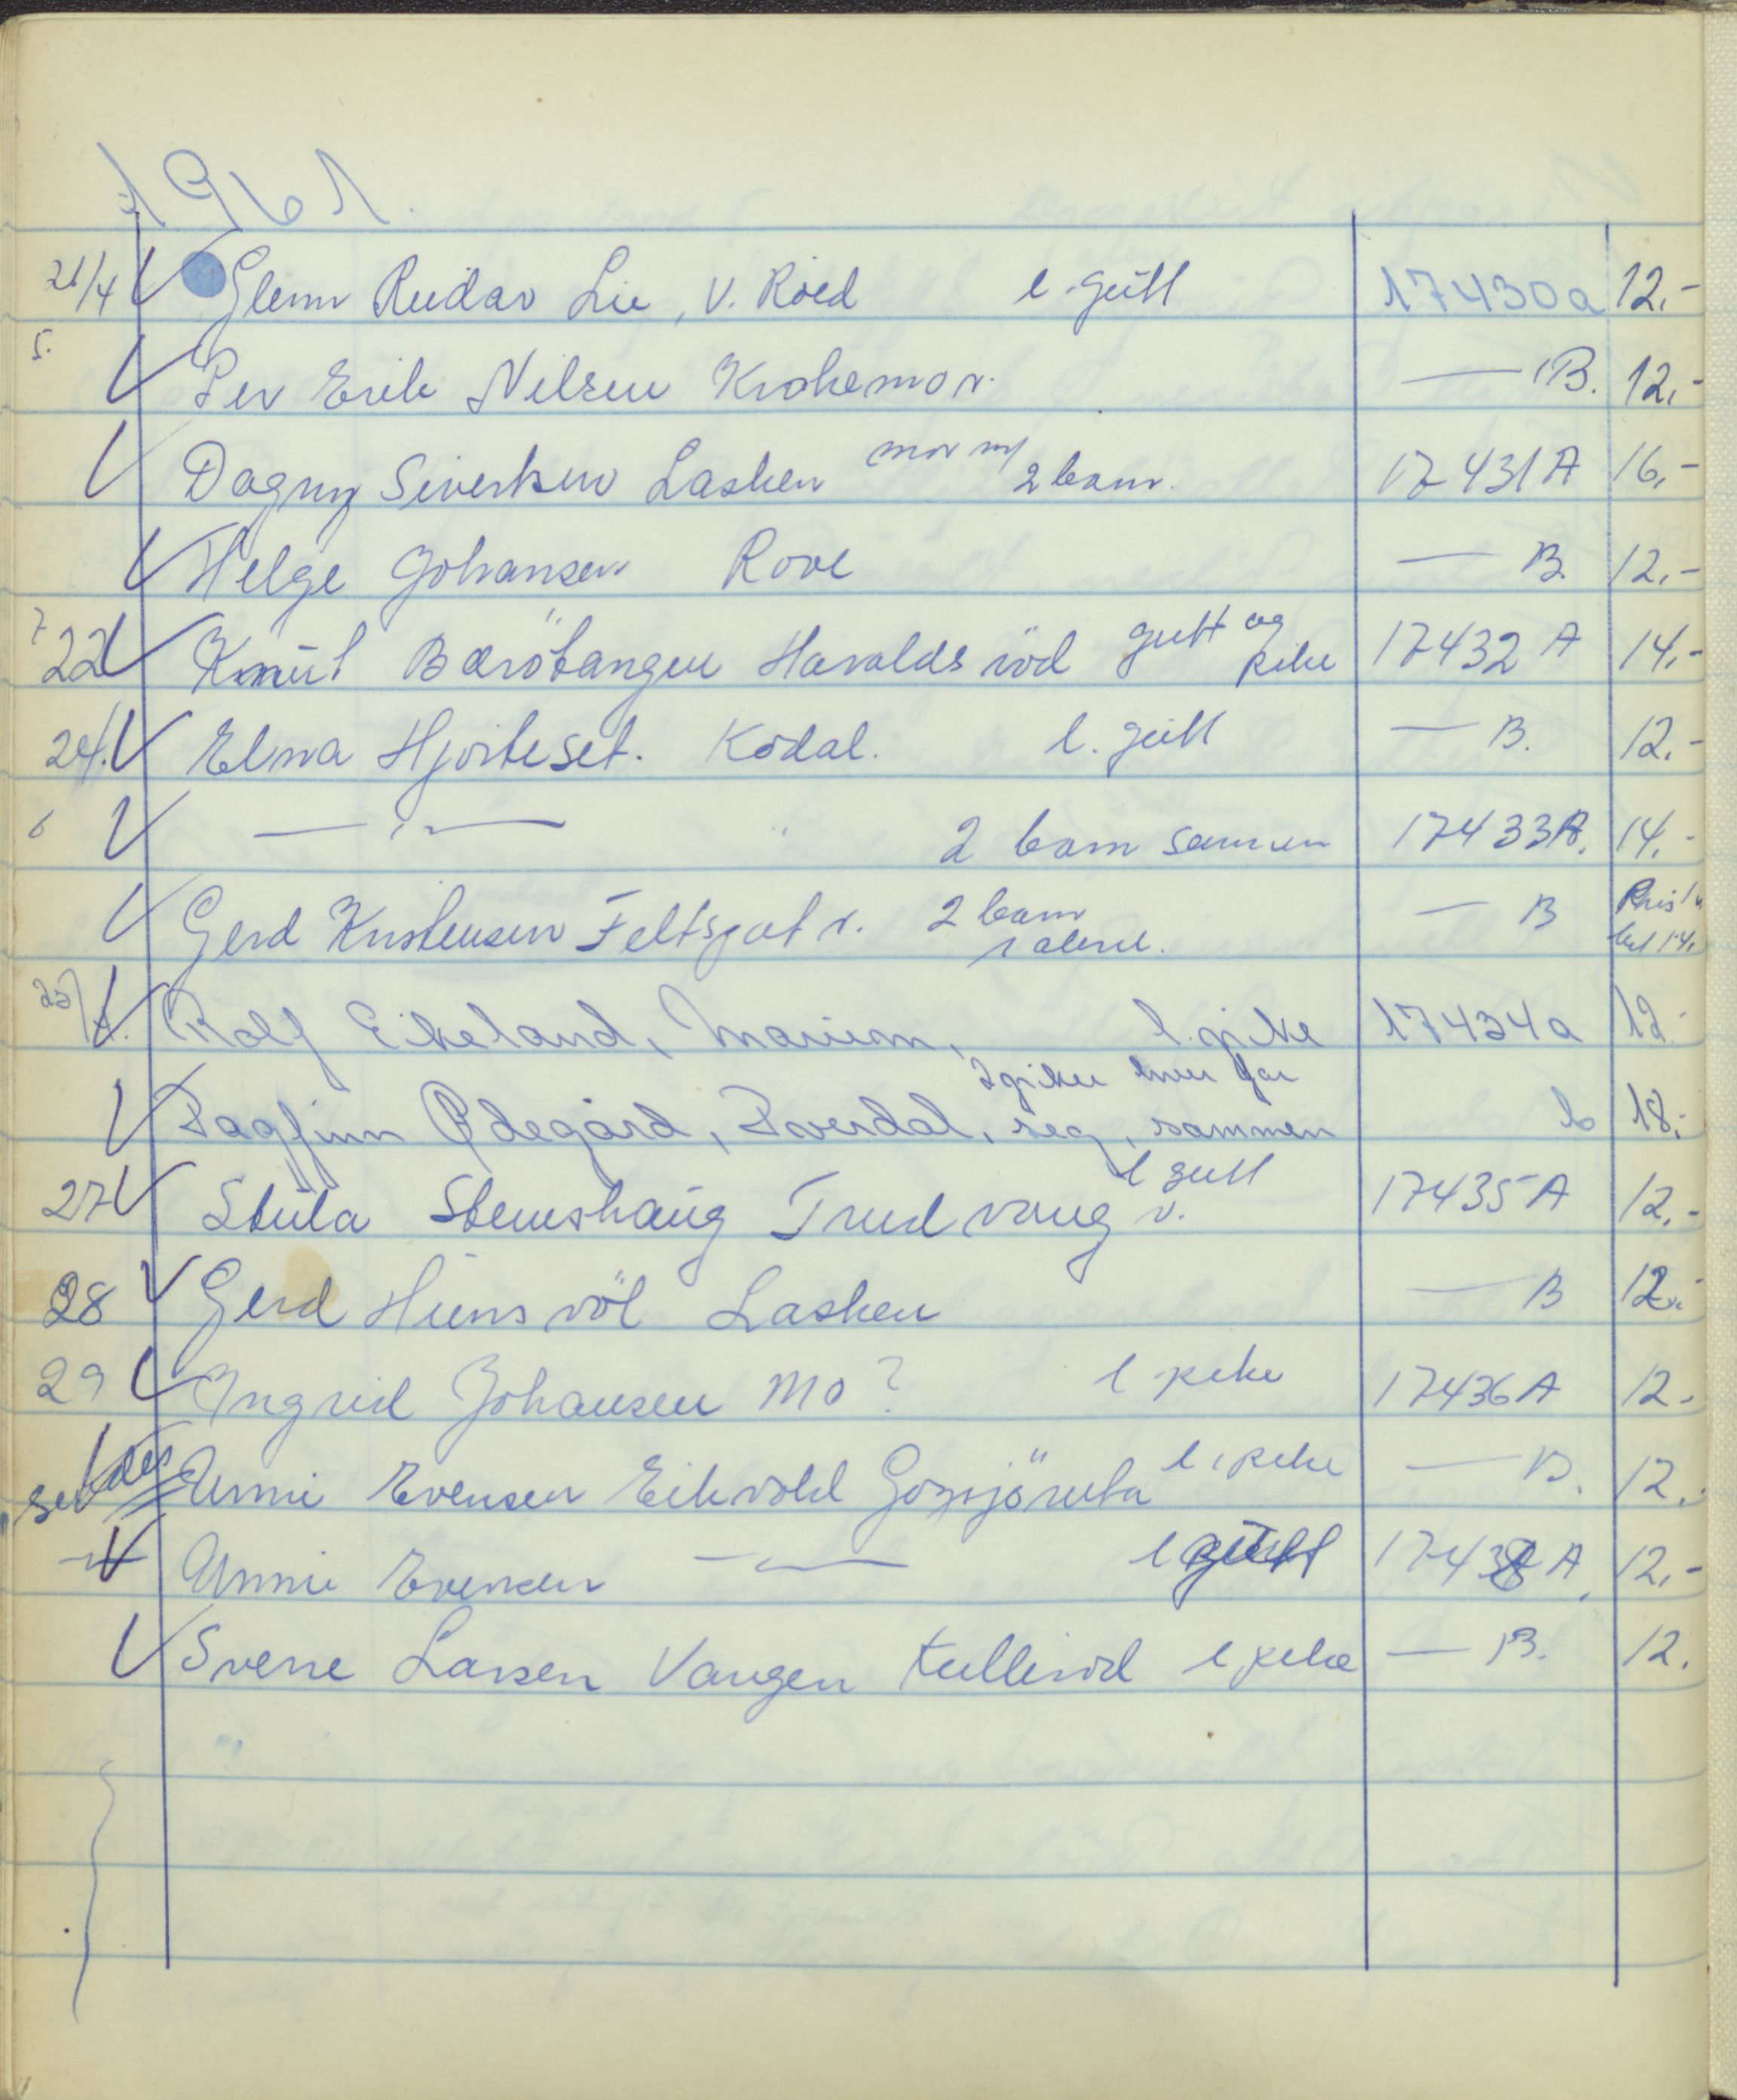 1961.
21/4 V Glenn Reidar Lie, V. Roed l. gütt 17430a 12.-
5. V Per Erik Nilsen Krokemo v. — B. 12,-
V Dagny Sivertsen Lasken mor m/ 2 barn. 17431A 16,-
V Helge Johansen Rove — B. 12,-
7 22 V Knüt Barötangen Haraldsröd gutt og pike 17432 A 14.-
24. V Elna Hjorteset. Kodal. l. gütt — B. 12.-
6 V —„— " 2 barn sammen 17433A. 14.-
V Gerd Kristensen Feltspat v. 2 barn — B
25/4. V Rolf Eikeland, l. pike 17434a 12.-
2 piker hver for
V Dagfinn Ødegård, Tverdal, seg, sammen b 18.-
27 V Stüla Stemshaüg Trudvang v. l gutt 17435A 12.-
28 V Gerd Lasken — B 12.-
29 V Ingrid Johansen Mo? l pike 17436A 12.-
V Anni Evensen Eikvold l. pike — B. 12.-
V Annie Evensen —„— l gütt 17438 A. 12.-
V Sverre Larsen Vangen Tullerød l pike — B. 12.